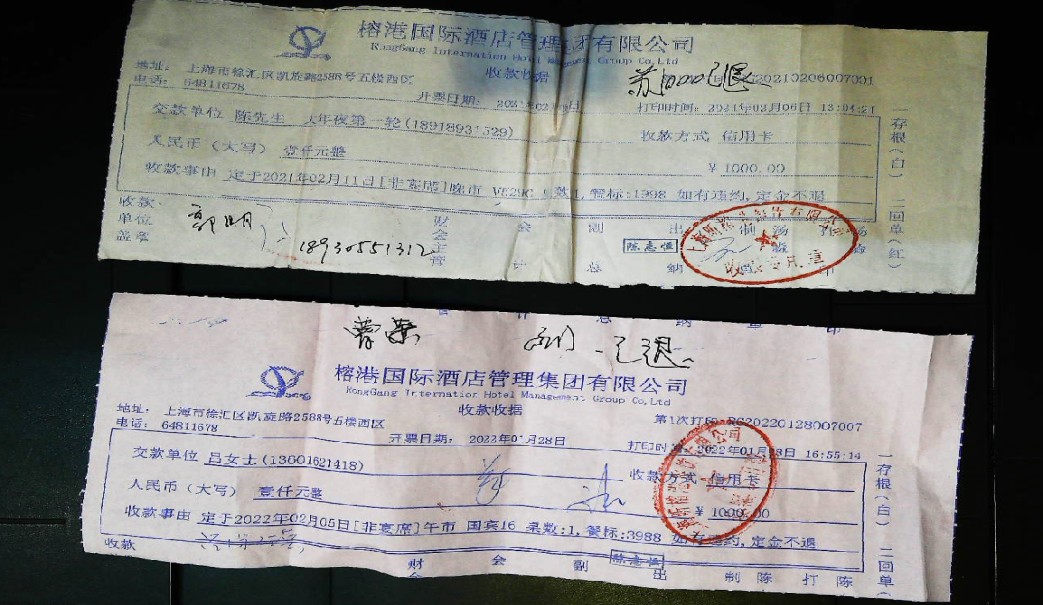 榕港国际酒店管理集团有限公司
RongGang Internation Hotel Management Group Co,Ltd
地址： 上海市徐汇区凯旋路2588号五楼西区
收款收据
苏 已退
20210206007001
电话： 64811678
开票日期： 2021年02月
打印时间： 2021年02月06日 12:04:21
交款单位 陈先生 大年夜第一轮(18918931529)
收款方式 信用卡
人民币（大写） 壹仟元整
￥1000.00
收款事由 定于2021年02月11日[非宴席]晚市 桌数:1,餐标:1998 如有违约,定金不退
收款
单位
盖章
郭明
18930551312
财 会 副 出 制
会
主
管 计 总 纳
陈志恒
一存根（白） 二回单（红）
曹
已退
榕港国际酒店管理集团有限公司
RongGang Internation Hotel Management Group Co,Ltd
地址： 上海市徐汇区凯旋路2588号五楼西区
收款收据
第1次打印: RG20220128007007
电话： 64811678
开票日期： 2022年01月28日
打印时 2022年01月28日 16:55:14
交款单位 吕女士(13601621418)
收款方式 信用卡
人民币（大写） 壹仟元整
￥1000.00
收款事由 定于2022年02月05日[非宴席]午市 国宾16 桌数:1,餐标:3988 如有违约,定金不退
收款
陈志恒
财 会 副 出 制 陈 打 陈
一存根（白） 二回单